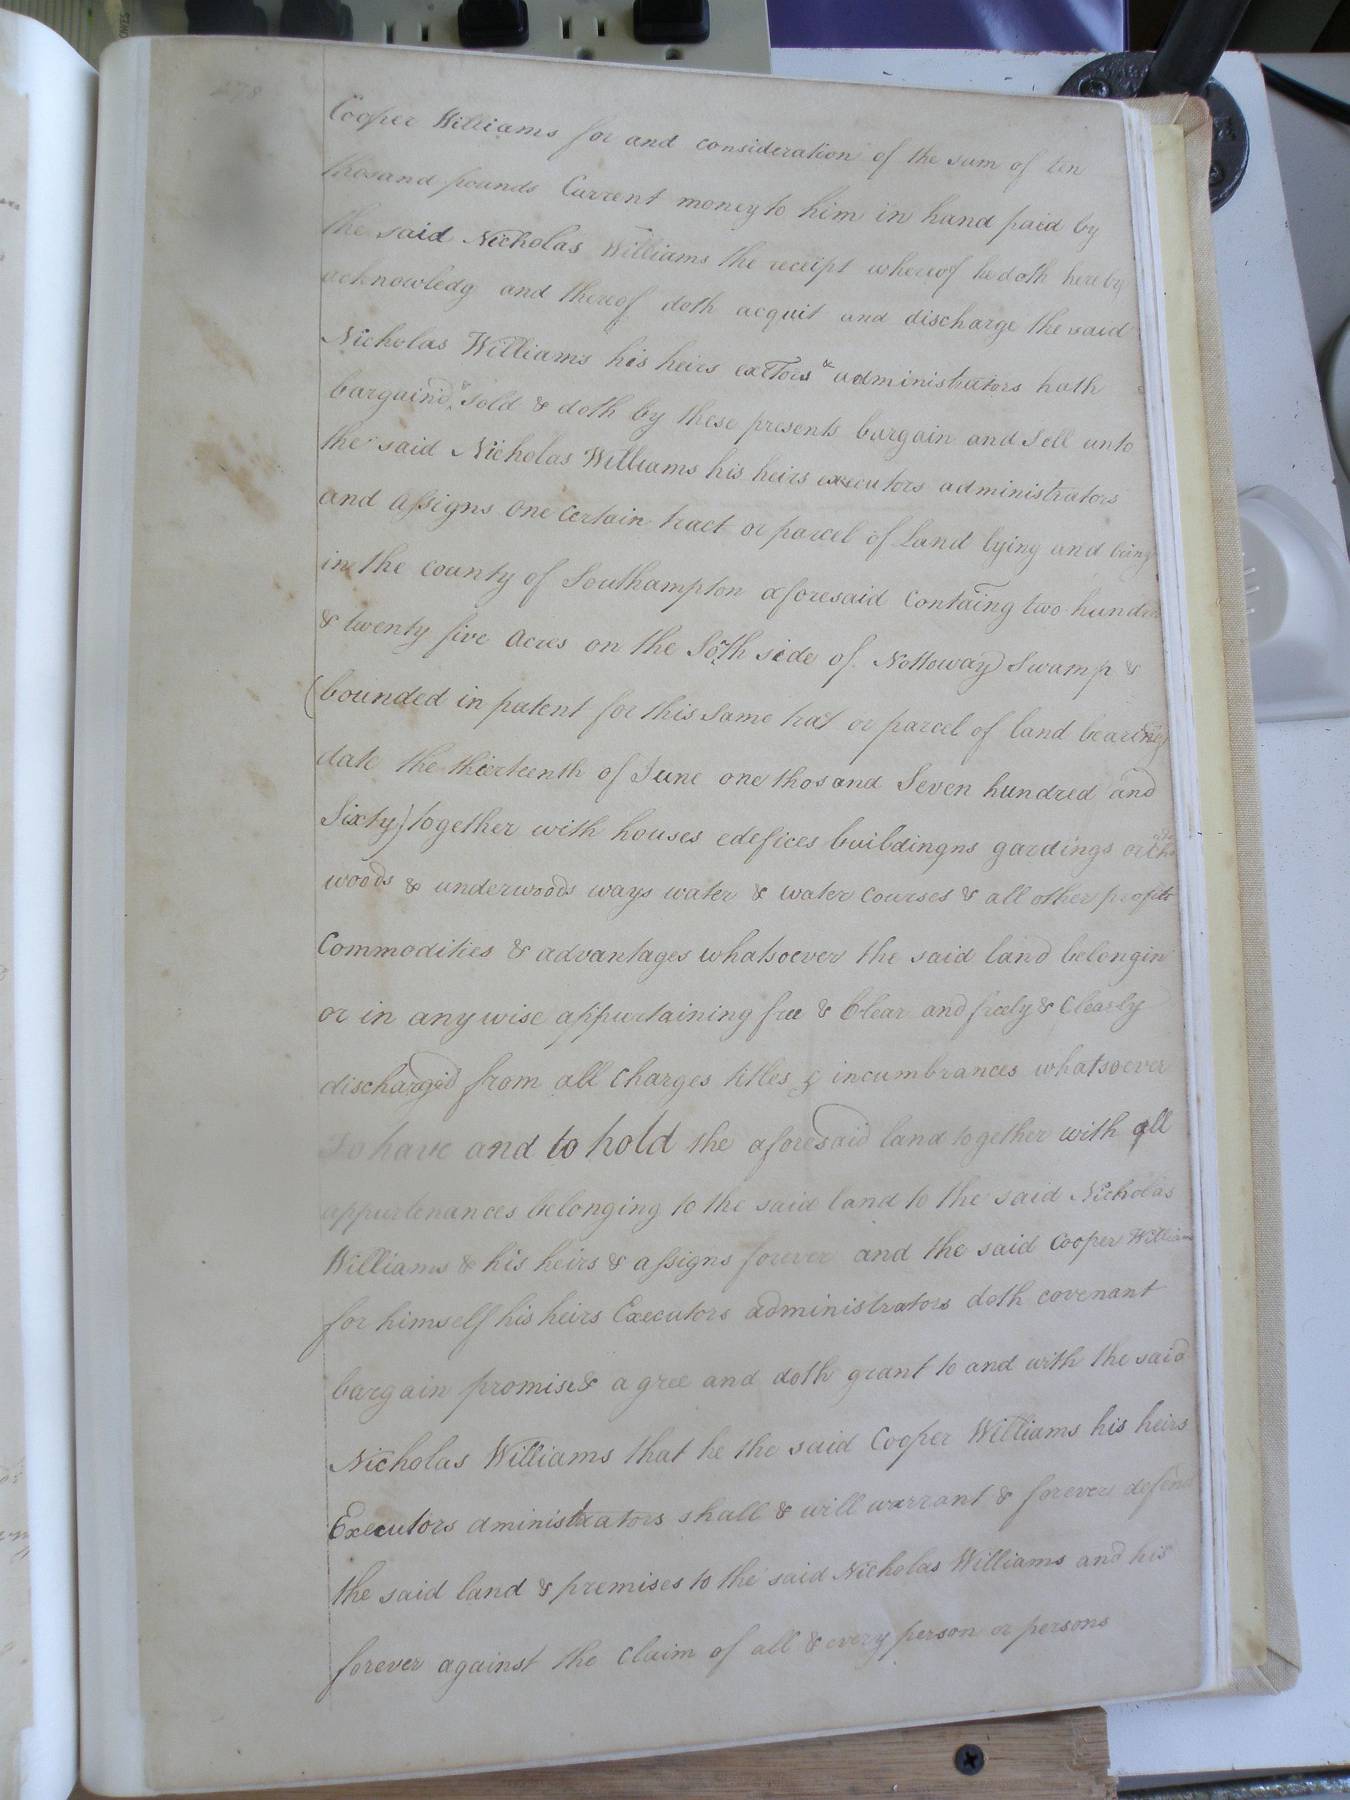 278
Cooper Williams for and consideration of the sum of ten
thosand pounds Current money to him in hand paid by
the said Nicholas Williams the receipt whereof he doth hereby
acknowledg and thereof doth acquit and discharge the said
Nicholas Williams his heirs exctors & administrators hath
bargaind & Sold & doth by these presents bargain and Sell unto
the said Nicholas Williams his heirs executors administrators
and assigns one Certain tract or parcel of Land lying and being
in the county of Southampton aforesaid Containg two hundred
& twenty five Acres on the Soth side of Nottoway Swamp &
(bounded in patent for this Same trat or parcel of land bearing
date the thirteenth of June one thosand Seven hundred and
Sixty) together with houses edefices buildingns gardings
woods & underwoods ways water & water Courses & all other profits
Commodities & advantages whatsoever the said land belongin
or in any wise appurtaining free & Clear and freely & Clearly
discharged from all Charges titles & incumbrances whatsoever
To have and to hold the aforesaid land together with all
appurtenances belonging to the said land to the said Nicholas
Williams & his heirs & assigns forever and the said Cooper Williams
for himself his heirs Executors administrators doth covenant
bargain promise & agree and doth grant to and with the said
Nicholas Williams that he the said Cooper Williams his heirs
Executors aministrators shall & will warrant & forever defend
the said land & premises to the said Nicholas Williams and his
forever against the Claim of all & every person or persons